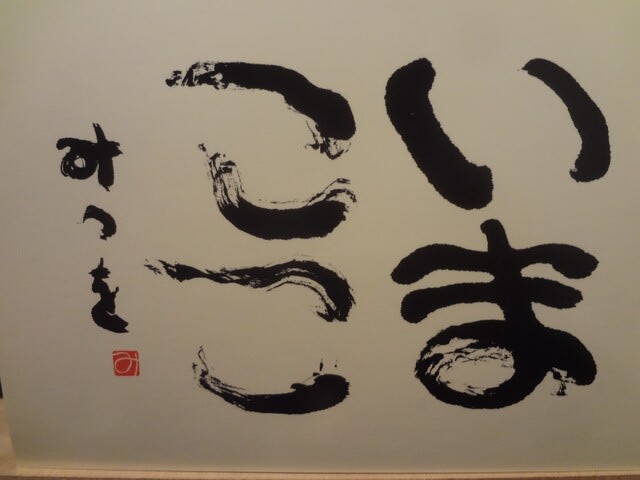 いま
ここ
みつを
み